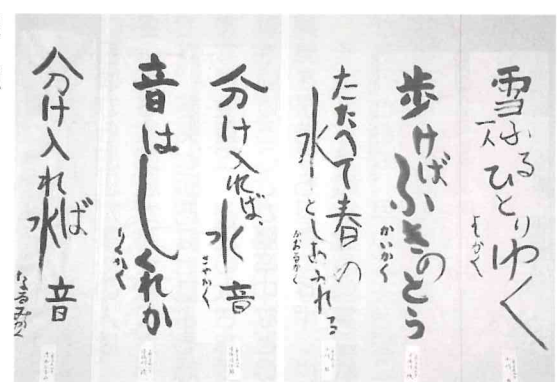 雪ふる
一人ひとりゆく
歩けば
ふきのとう
かいかく
たたへて春の
水としあふれる
かおるかく
分け入れば、
水音
さやかく
音は
しぐれか
りくかく
分け入れば
水音
なるみかく